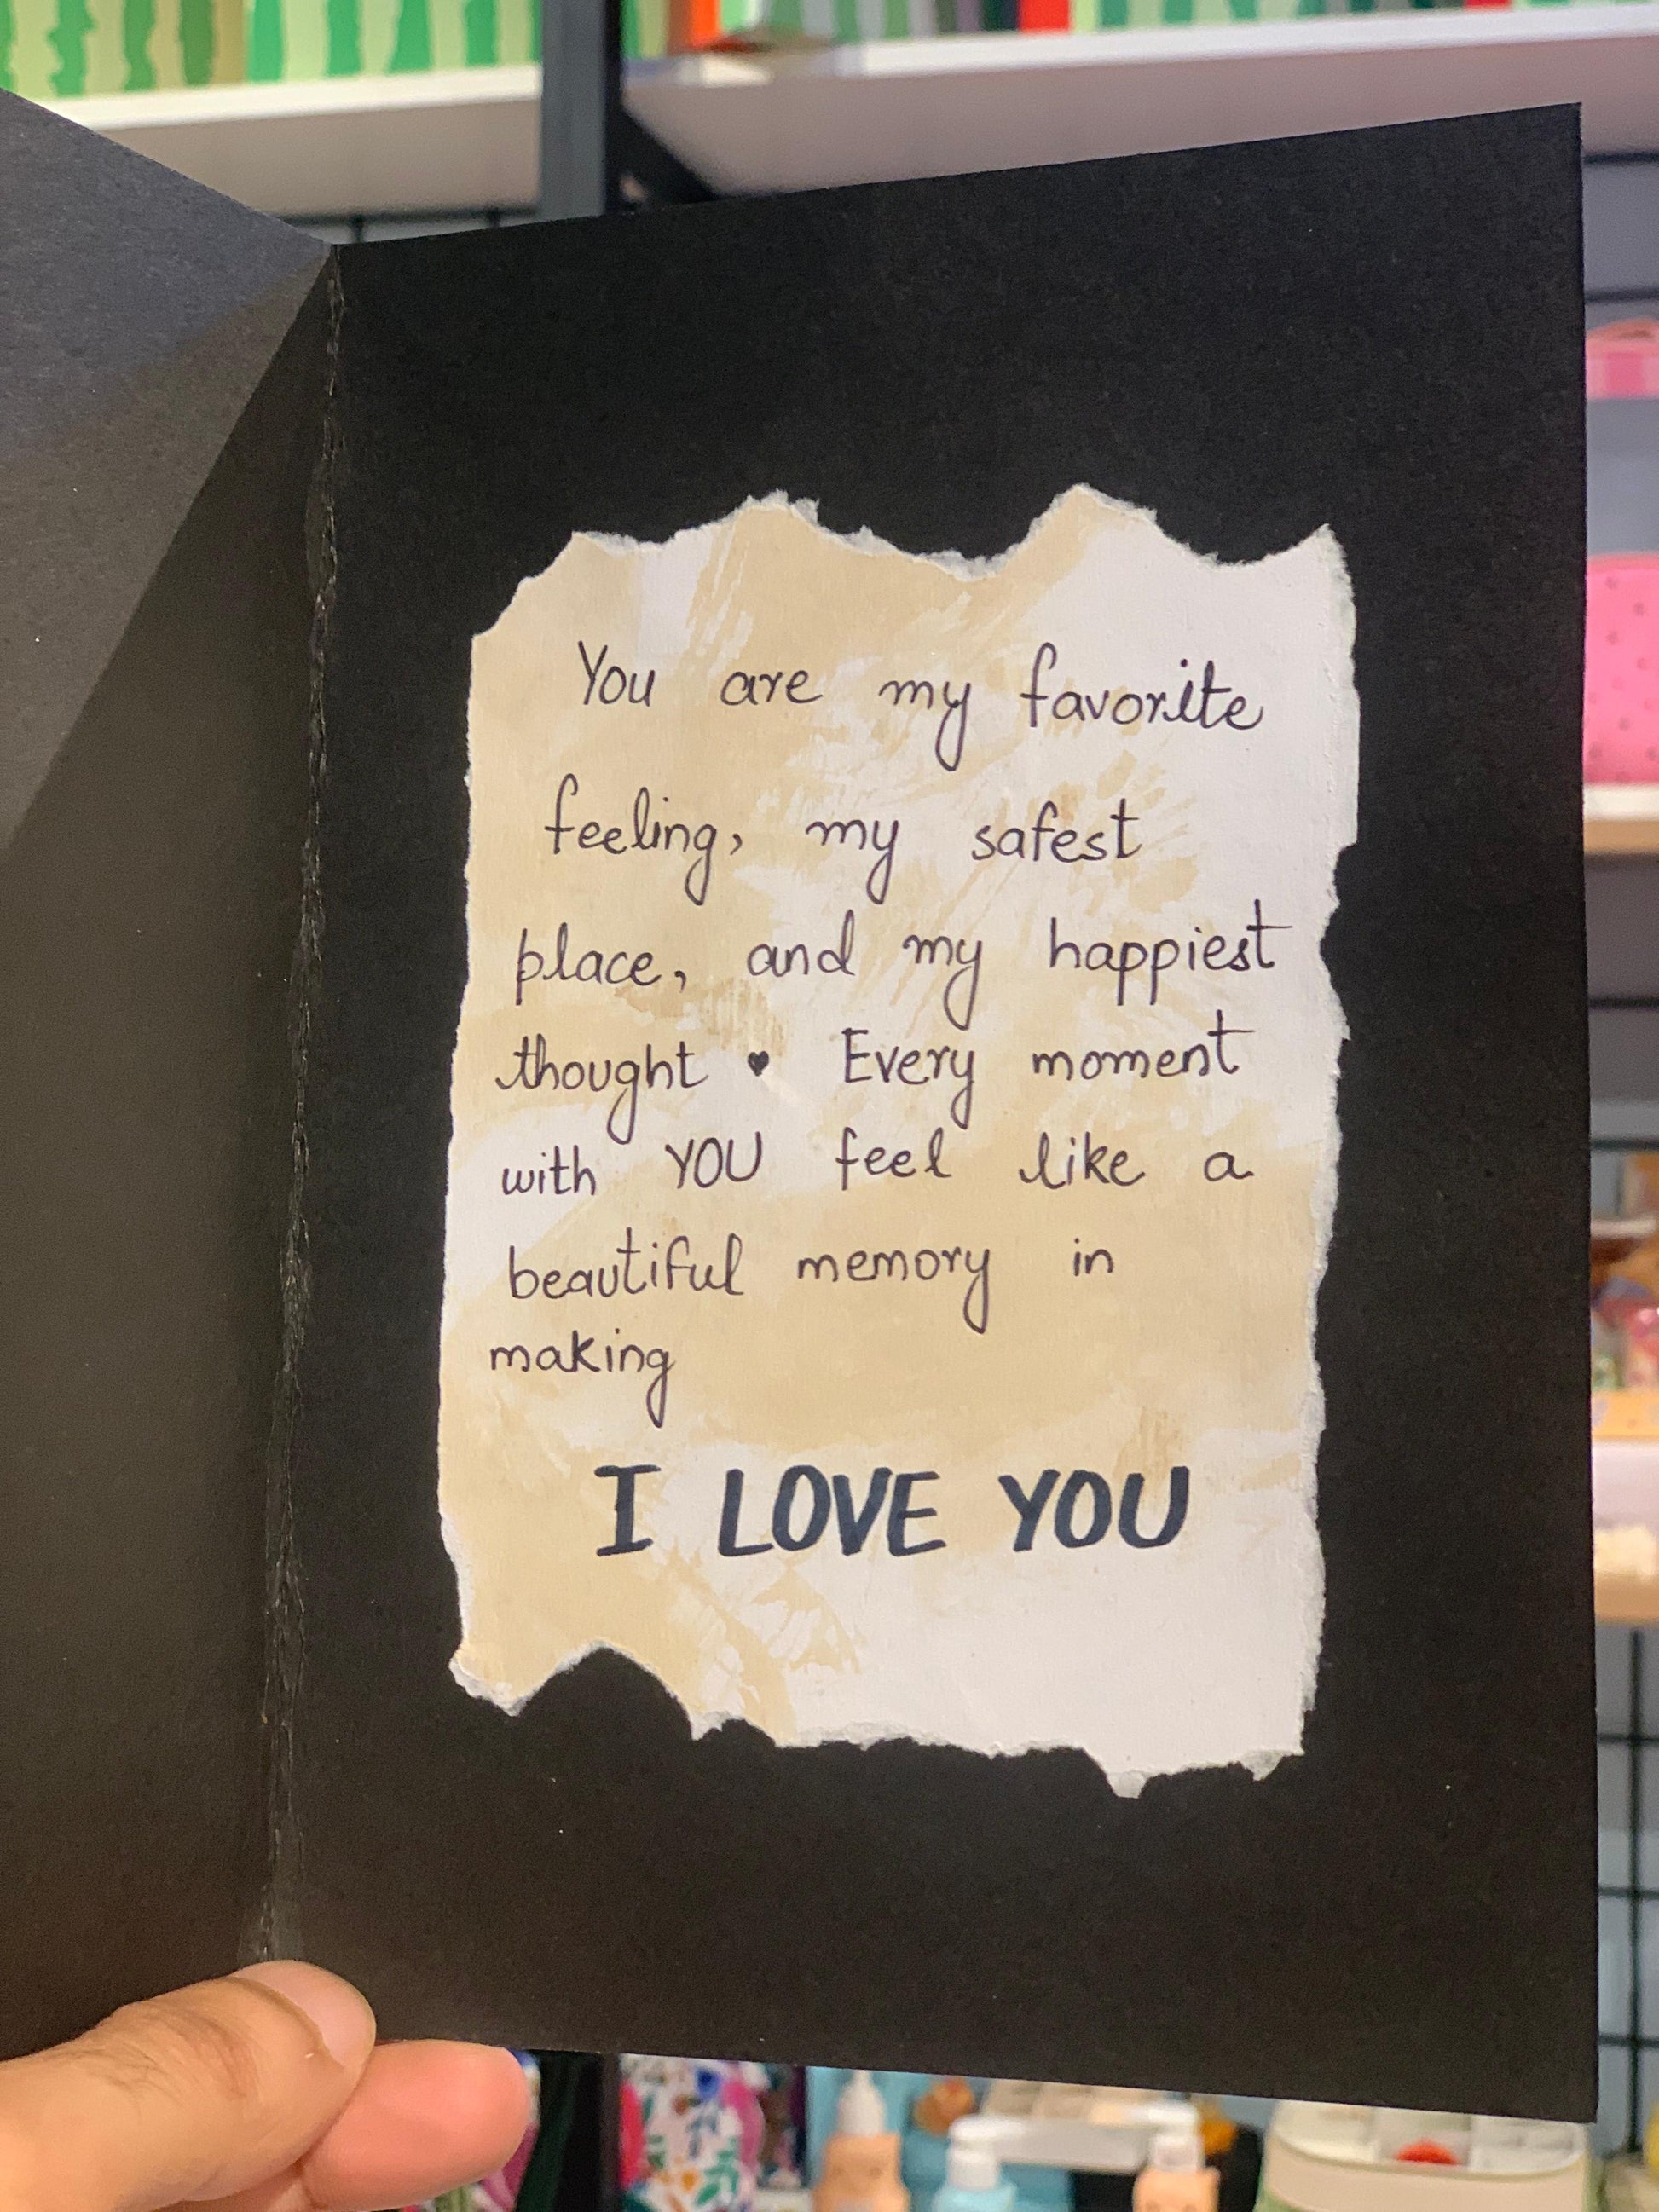 You are my favorite
feeling, my safest
place, and my happiest
thought ♥ Every moment
with YOU feel like a
beautiful memory in
making
I LOVE YOU